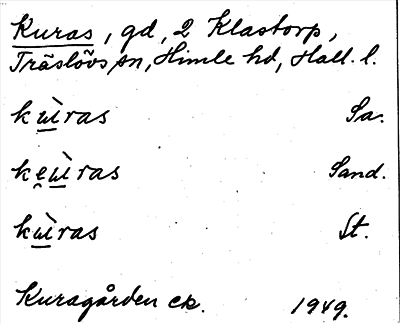 Kuras, gd, 2 Klastorp,
Träslövs sn, Himle hd, Hall. l.
kɯ̀ras Sa.
ke̯ɯ̀ras Sand.
kɯ̀ras St.
Kuragården ek. 1949.